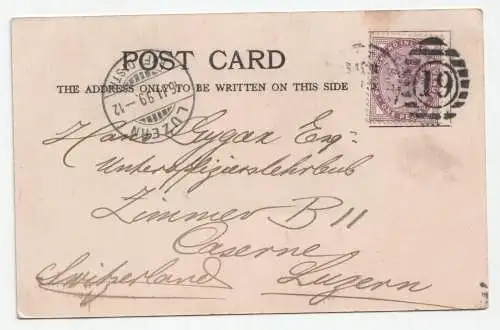 POST CARD
THE ADDRESS ONLY TO BE WRITTEN ON THIS SIDE
LUZERN
16.II.99.-12
19
Hans Gygax Esq.
Unteroffizierslehrbub
Zimmer B II
Caserne
Switzerland Luzern